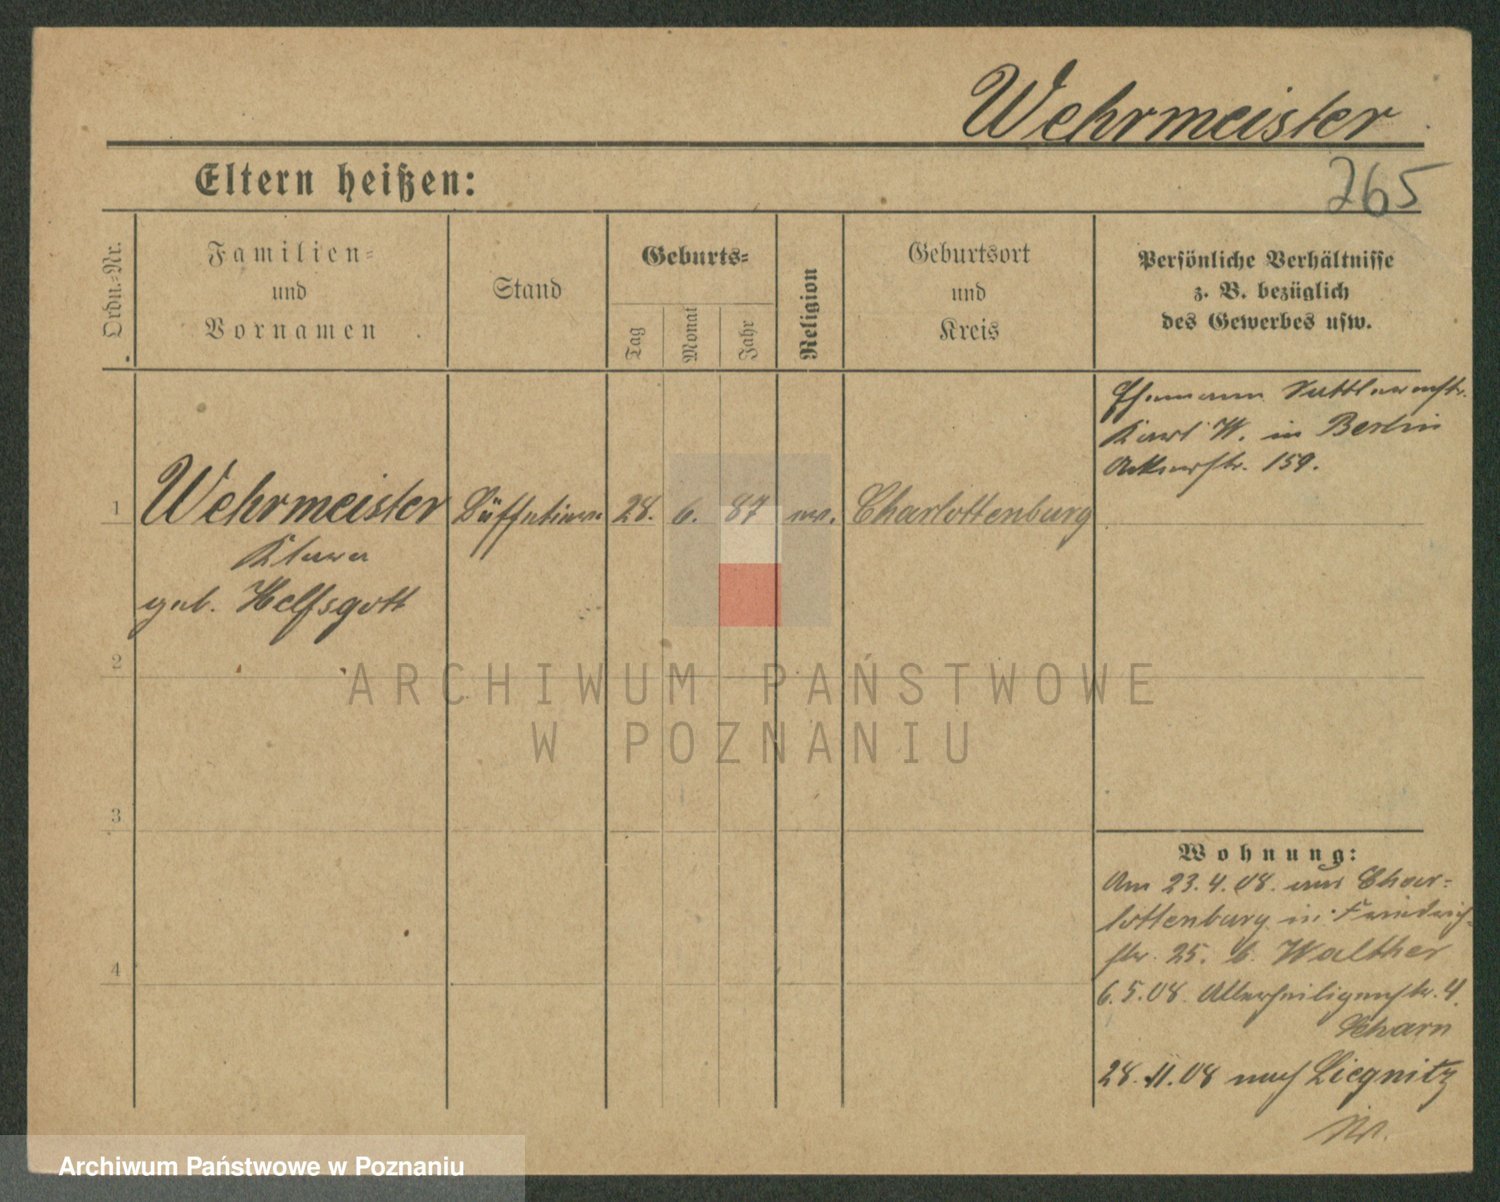 Wehrmeister
Eltern heißen:
265
Ordn.-Nr.
Familien-
und
Vornamen
Stand
Geburts-
Tag
Monat
Jahr
Religion
Geburtsort
und
Kreis
Persönliche Verhältnisse
z. B. bezüglich
des Gewerbes usw.
Ehemann
Karl W. in Berlin
Ackerstr. 159.
1
Wehrmeister
Klara
geb. Helfsgott
Büffetiere
28.
6.
87
ev.
Charlottenburg
2
3
4
Wohnung:
Am 23.4.08. aus Char-
lottenburg in Friedrich-
str. 25. b. Walther
6.5.08. Allerheiligenstr. 4.
Scharn
28.11.08 nach Liegnitz
ARCHIWUM PAŃSTWOWE
W POZNANIU
Archiwum Państwowe w Poznaniu